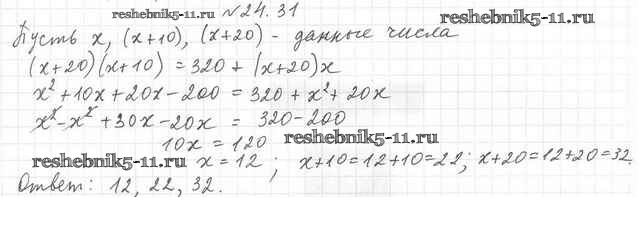 reshebnik5-11.ru №24.31 reshebnik5-11.ru
Пусть x, (x+10), (x+20) - данные числа
(x+20)(x+10) = 320 + (x+20)x
x² + 10x + 20x - 200 = 320 + x² + 20x
x² - x² + 30x - 20x = 320 - 200
10x = 120 reshebnik5-11.ru
reshebnik5-11.ru x = 12 ; x+10 = 12+10 = 22; x+20 = 12+20 = 32.
Ответ: 12, 22, 32.